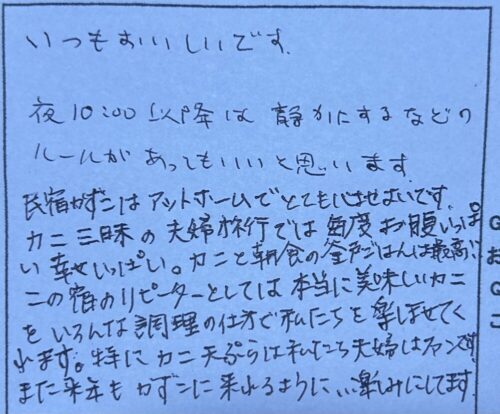 いつもおいしいです.
夜10:00以降は 静かにするなどの
ルールがあってもいいと思います.
民宿かずこはアットホームでとても心地よいです。
カニ三昧の夫婦旅行では毎度お腹いっぱ
い幸せいっぱい。カニと朝食の釜戸ごはんは最高!
この宿のリピーターとしては本当に美味しいカニ
をいろんな調理の仕方で私たちを楽しませてく
れます。特にカニ天ぷらは私たち夫婦はファンです
また来年もかずこに来れるように…楽しみにしてます
G
お
Q
こ